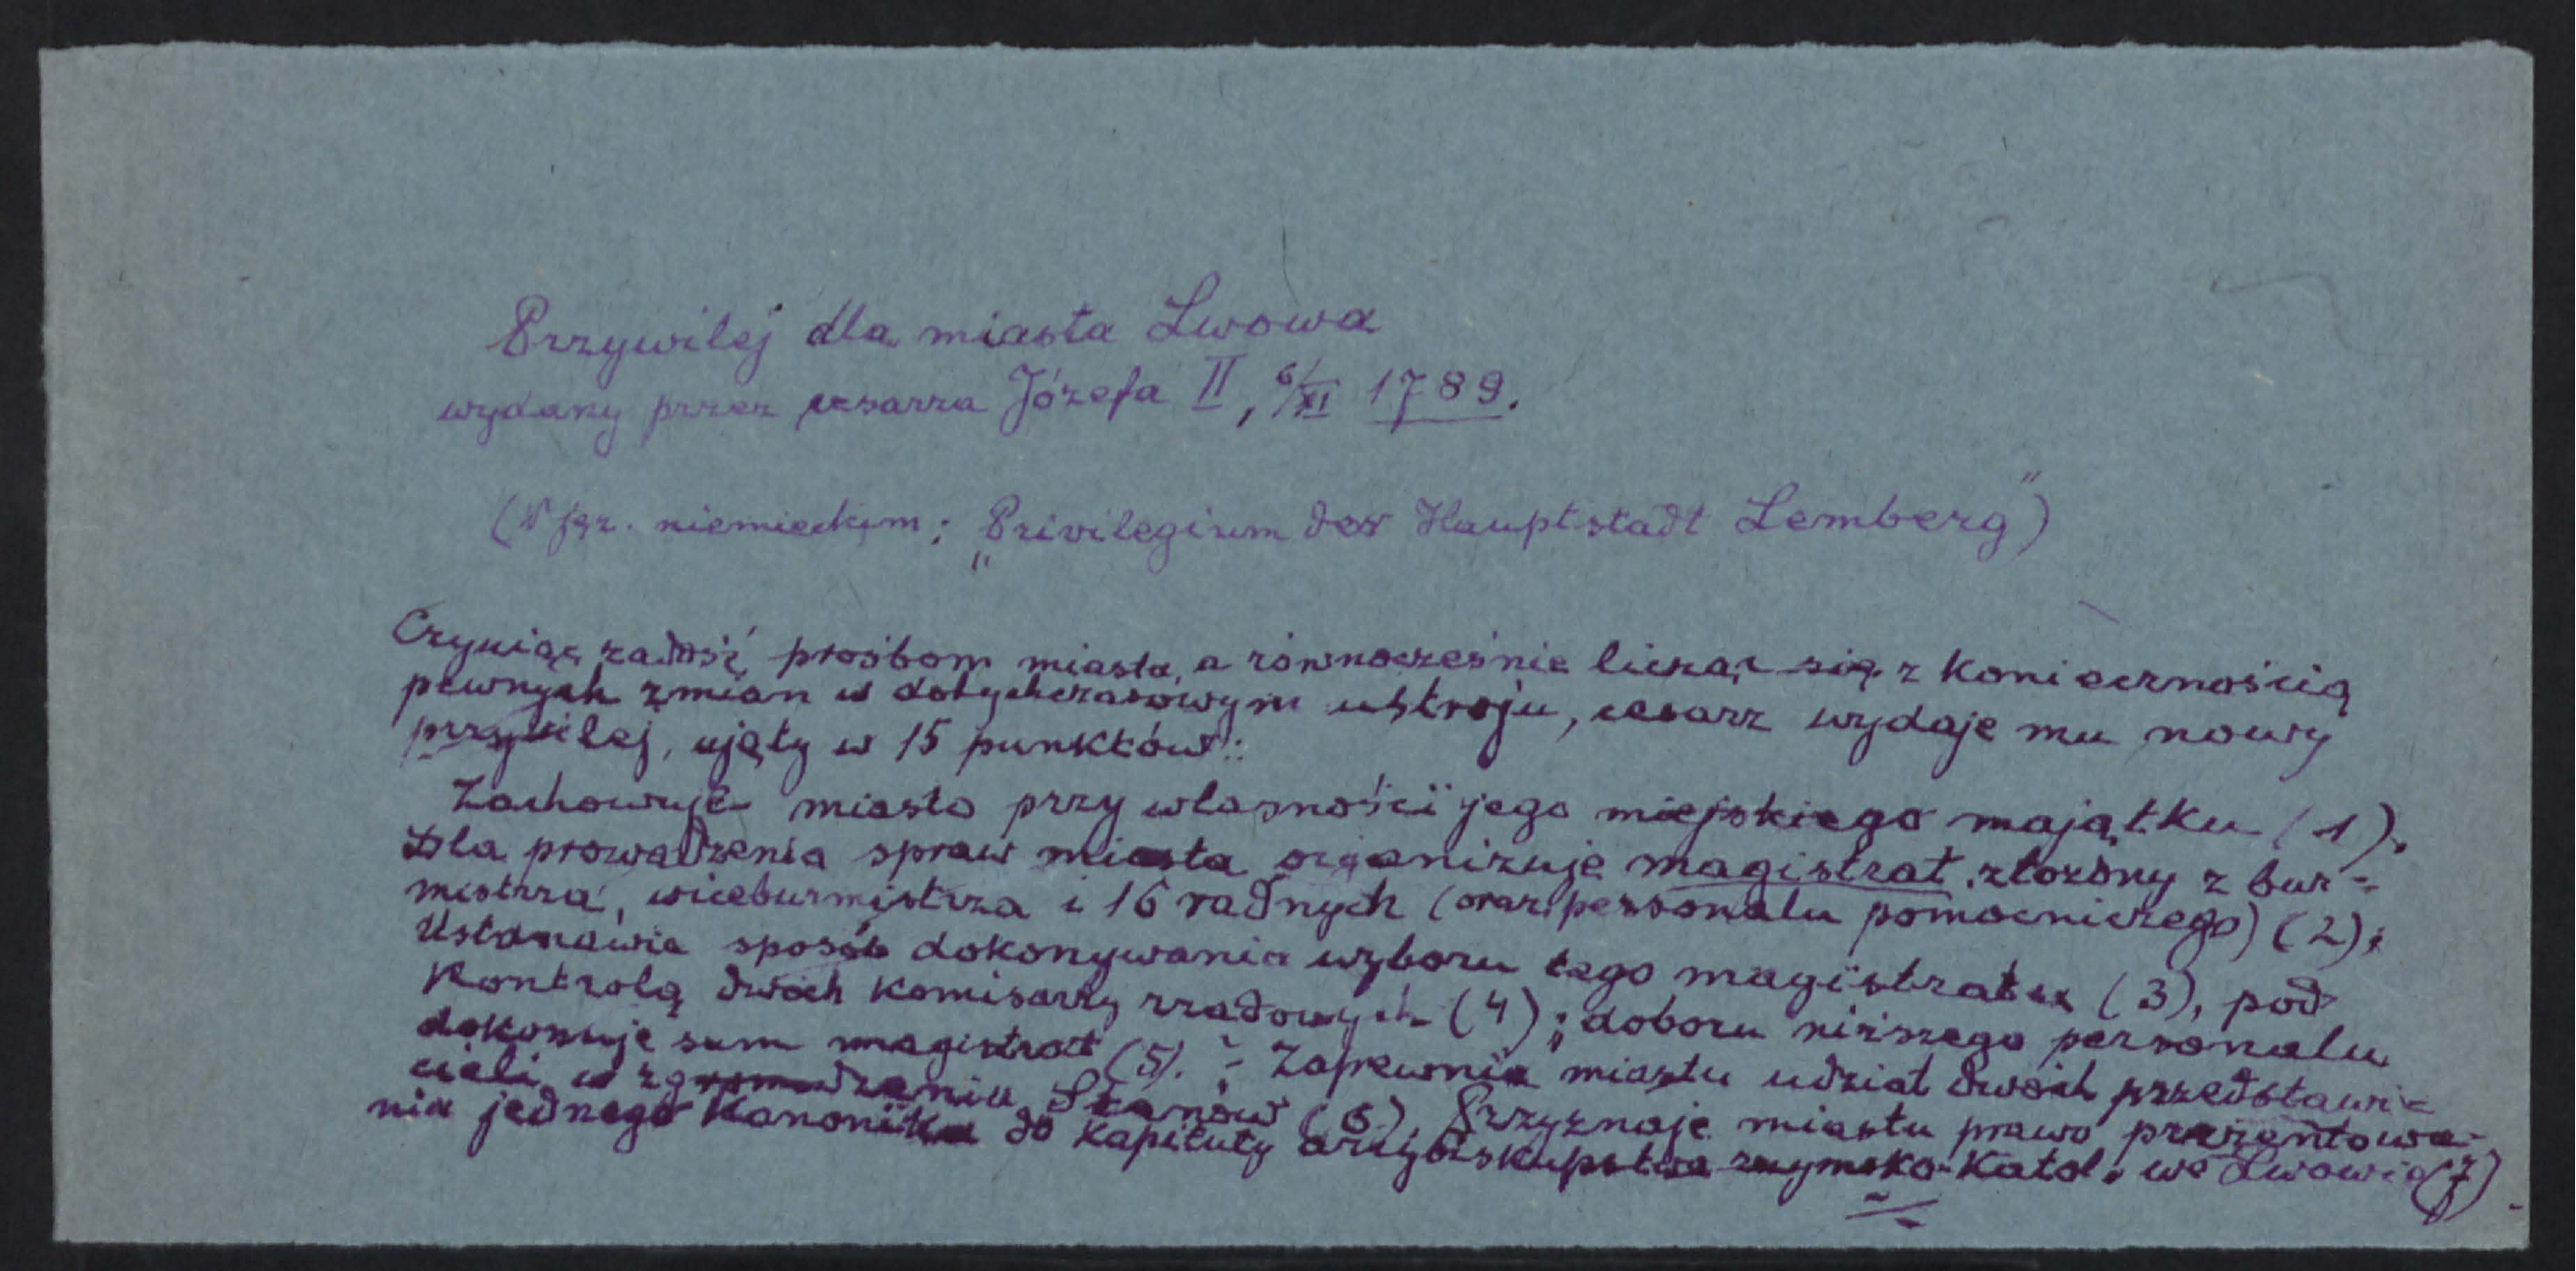 Przywilej dla miasta Lwowa
wydany przez cesarza Józefa II, 6/XI 1789.
(W jęz. niemieckim: „Privilegium der Hauptstadt Lemberg")
Czyniąc zadość prośbom miasta, a równocześnie licząc się z koniecznością
pewnych zmian w dotychczasowym ustroju, cesarz wydaje mu nowy
przywilej, ujęty w 15 punktów:
Zachowuje miasto przy własności jego miejskiego majątku (1).
Dla prowadzenia spraw miasta organizuje magistrat, złożony z bur-
mistrza, wiceburmistrza i 16 radnych (oraz personalu pomocniczego) (2);
Ustanawia sposób dokonywania wyboru tego magistratu (3), pod
Kontrolą dwóch komisarzy rządowych (4); doboru niższego personalu
dokonuje sam magistrat (5). - Zapewnia miastu udział dwóch przedstawi-
cieli w zgromadzeniu Stanów (6). Przyznaje miastu prawo prezentowa-
nia jednego Kanonika do kapituły arcybiskupstwa rzymsko-katol. we Lwowie (7).